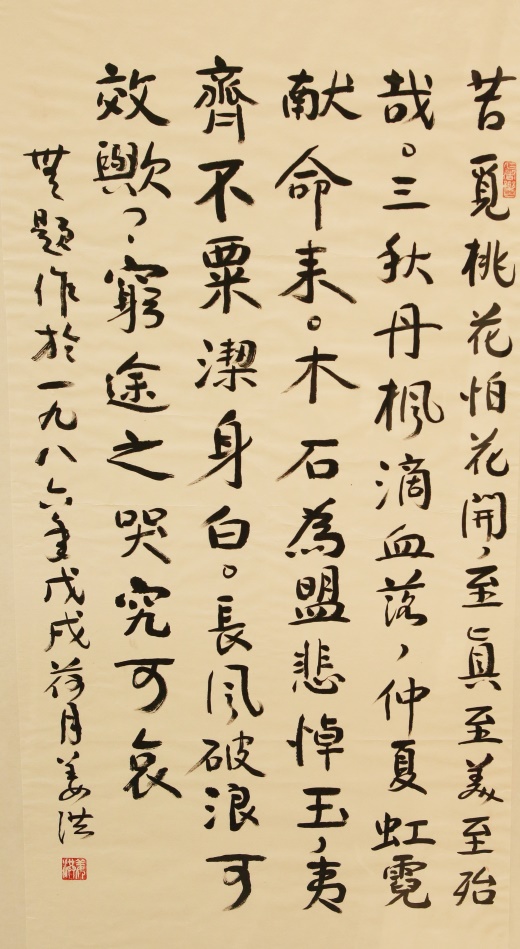 苦覓桃花怕花開，至眞至美至殆
哉。三秋丹楓滴血落，仲夏虹霓
献命来。木石為盟悲悼玉，夷
齊不粟潔身白。長風破浪可
效歟？窮途之哭究可哀
無題作於一九八六年戊戌荷月姜洪